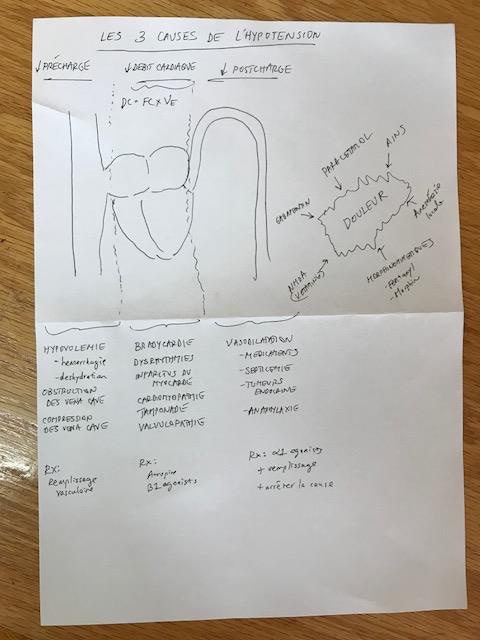 LES 3 CAUSES DE L'HYPOTENSION
↓ PRÉCHARGE
↓ DEBIT CARDIAQUE
↓ POSTCHARGE
DC = FC x VE
PARACETAMOL
AINS
GABAPENTIN
DOULEUR
Anesthésie
locale
NMDA
(KETAMINE)
- Fentanyl
- Morphine
HYPOVOLEMIE
- hemorrhagie
- deshydration
OBSTRUCTION
DES VENA CAVE
COMPRESSION
DES VENA CAVE
RX:
Remplissage
vasculaire
BRADYCARDIE
DYSRHYTHMIES
INFARCTUS DU
MYOCARDE
CARDIOMYOPATHIE
TAMPONADE
VALVULOPATHIE
RX:
Atropine
B1 agonists
VASODILATATION
- MEDICAMENTS
- SEPTICEMIE
- TUMEURS
ENDOCRINE
- ANAPHYLAXIE
RX: α1 agonists
+ remplissage
+ arrêter la cause